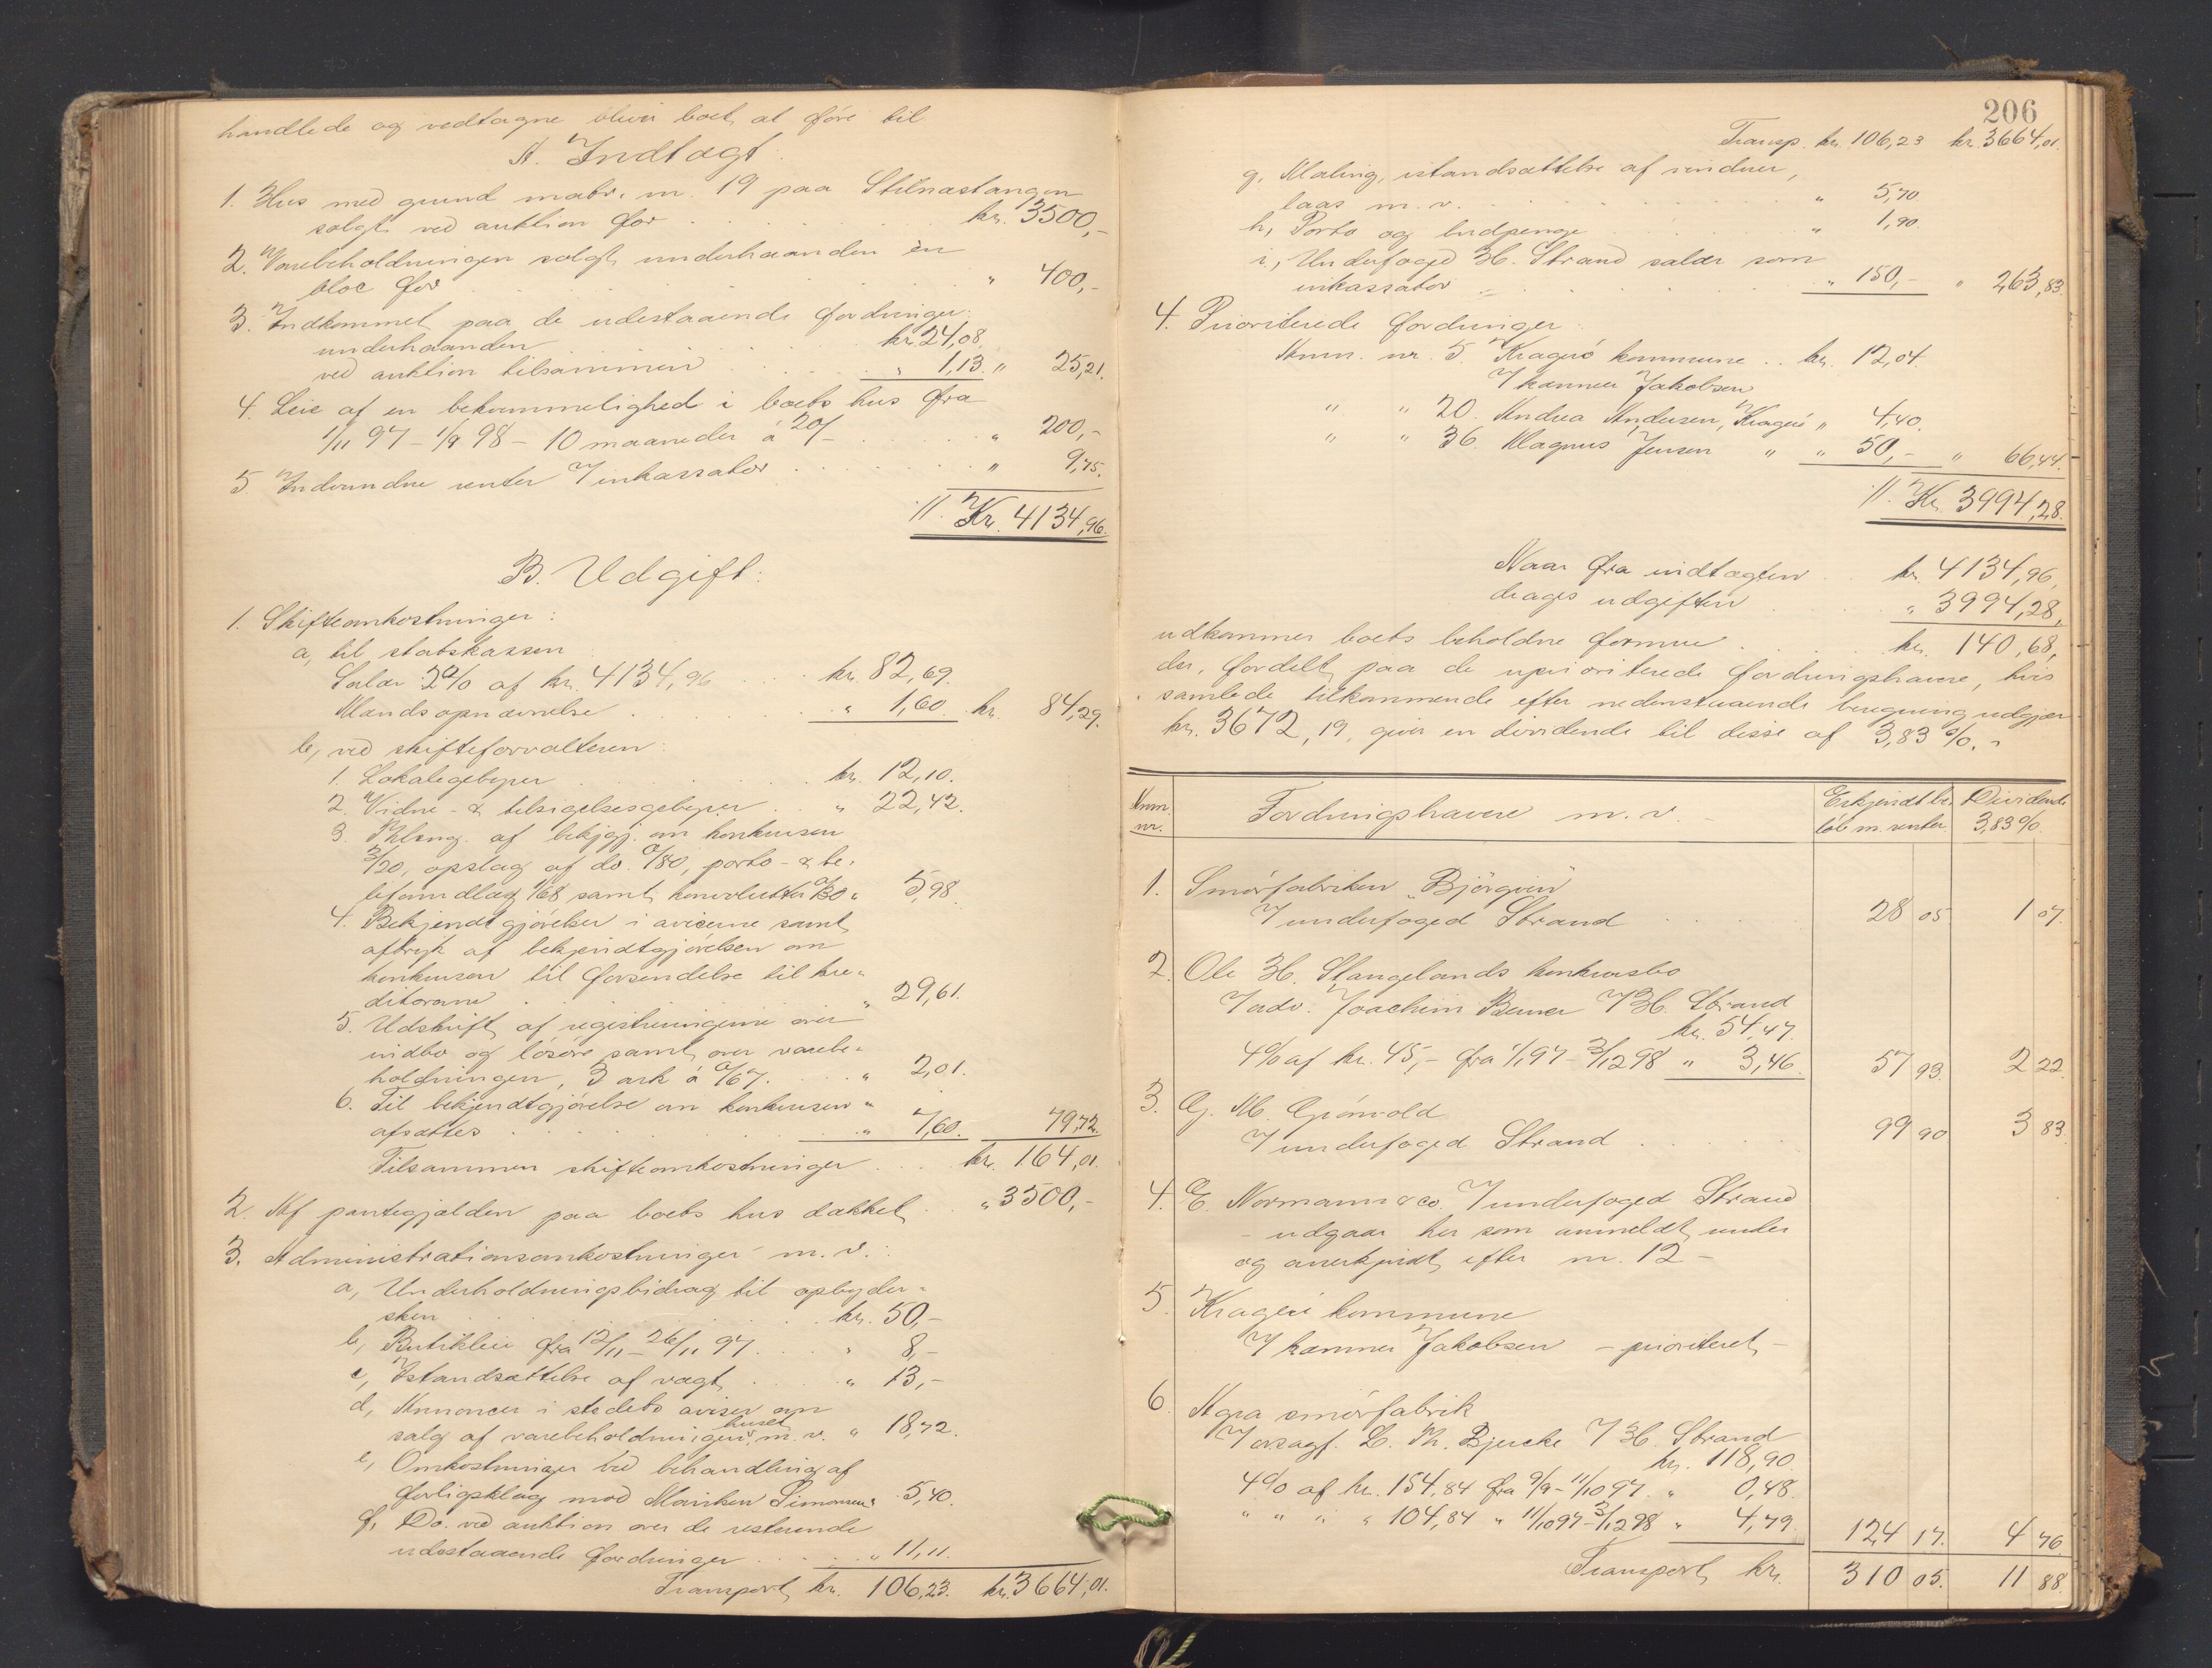 handlede og vedtagne bliver boet at føre til
A. Indtægt:
1. Hus med grund matr. nr. 19 paa Stilnæstangen
solgt ved auktion for . . . kr. 3500,-
2. Varebeholdningen solgt underhaanden en
bloc for . . . " 400,-
3. Indkommet paa de udestaaende fordringer:
underhaanden . . . kr. 24,08.
ved auktion tilsammen . . . " 1,13. " 25,21.
4. Leie af en bekvemmelighed i boets hus fra
1/11 97 - 1/9 98 - 10 maaneder à 20/- . . . " 200,-
5. Indvundne renter V inkassator . . . " 9,75.
//. Kr. 4134,96.
B. Udgift:
1. Skifteomkostninger:
a, til statskassen
Salær 2% af kr. 4134,96 . . . kr. 82,69.
Mandsopnævnelse . . . " 1,60. kr. 84,29.
b, ved skifteforvalteren:
1. Lokalegebyrer . . . kr. 12,10.
2. Vidne- & tilsigelsesgebyrer . . " 22,42.
3. Thlæsng. af bekjgj. om konkursen
3/20, opslag af do. 0/80, porto- & be-
fordlæg 1/68 samt konvolutter 0/30 " 5,98.
4. Bekjendtgjørelser i aviserne samt
aftryk af bekjendtgjørelsen om
konkursen til forsendelse til kre-
ditorerne . . . " 29,61.
5. Udskrift af registreringerne over
indbo og løsøre samt over varebe-
holdningen, 3 ark à 0/67. . . " 2,01.
6. Til bekjendtgjørelse om konkursen
afsættes . . . " 7,60. 79,72.
Tilsammen skifteomkostninger . . . kr. 164,01.
2. Af pantegjælden paa boets hus dækket . . " 3500,-
3. Administrationsomkostninger m. v.:
a, Underholdningsbidrag til opbyder-
sken . . . kr. 50,-
b, Butikleie fra 12/11 - 26/11 97. . . " 8,-
c, Istandsættelse af vægt . . . " 13,-
d, Annoncer i stedets aviser om
salg af varebeholdningen, huset m. v. " 18,72.
e, Omkostninger ved behandling af
forligsklag mod Mariken Simonsen " 5,40.
f, Do. ved auktion over de resterende
udestaaende fordringer . . . " 11,11.
Transport kr. 106,23. kr. 3664,01.
206
Transp. kr. 106,23 kr. 3664,01.
g, Maling, istandsættelse af vinduer,
laas m. v. . . . " 5,70
h, Porto og budpenge . . . " 1,90.
i, Underfoged H. Strand salær som
inkassator . . . " 150,- " 263,83.
4. Prioriterede fordringer:
Anm. nr. 5. Kragerø kommune . . kr. 12,04.
V kæmner Jakobsen
" " 20. Andrea Andersen, Kragerø " 4,40.
" " 36. Magnus Jensen " " 50,- " 66,44.
//. Kr. 3994,28.
Naar fra indtægten . . kr. 4134,96,
drages udgiften . . . " 3994,28,
udkommer boets beholdne formue . . . kr. 140,68,
der, fordelt paa de uprioriterede fordringshavere, hvis
samlede tilkommende efter nedenstaaende beregning udgjør
kr. 3672,19, giver en dividende til disse af 3,83 %. -
Anm. nr. Fordringshavere m. v. - Erkjendt be- løb m. renter Dividende 3,83%
1. Smørfabriken "Bjørgvin"
V underfoged Strand . . . 28 05 1 07.
2. Ole H. Stangelands konkursbo
V adv. Joachim Berner V H. Strand
kr. 54,47.
4% af kr. 45,- fra 1/1 97 - 3/12 98 " 3,46. 57 93. 2 22.
3. G. M. Grönvold
V underfoged Strand . . . 99 90 3 83.
4. E. Normann & co. V underfoged Strand
- udgaar her som anmeldt under
og anerkjendt efter nr. 12 -
5. Kragerø kommune
V kæmner Jakobsen - prioriteret -
6. Agra smørfabrik
V orsagf. L. Th. Bjercke V H. Strand
kr. 118,90.
4% af kr. 154,84 fra 9/9 - 11/10 97. " 0,48.
" " " " 104,84 " 11/10 97 - 3/12 98 " 4,79. 124 17. 4 76
Transport kr. 310 05. 11 88.